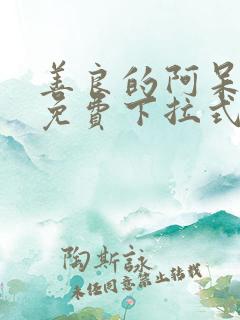 善良的阿呆
免費下拉式
陶斯詠
未经同意禁止转载